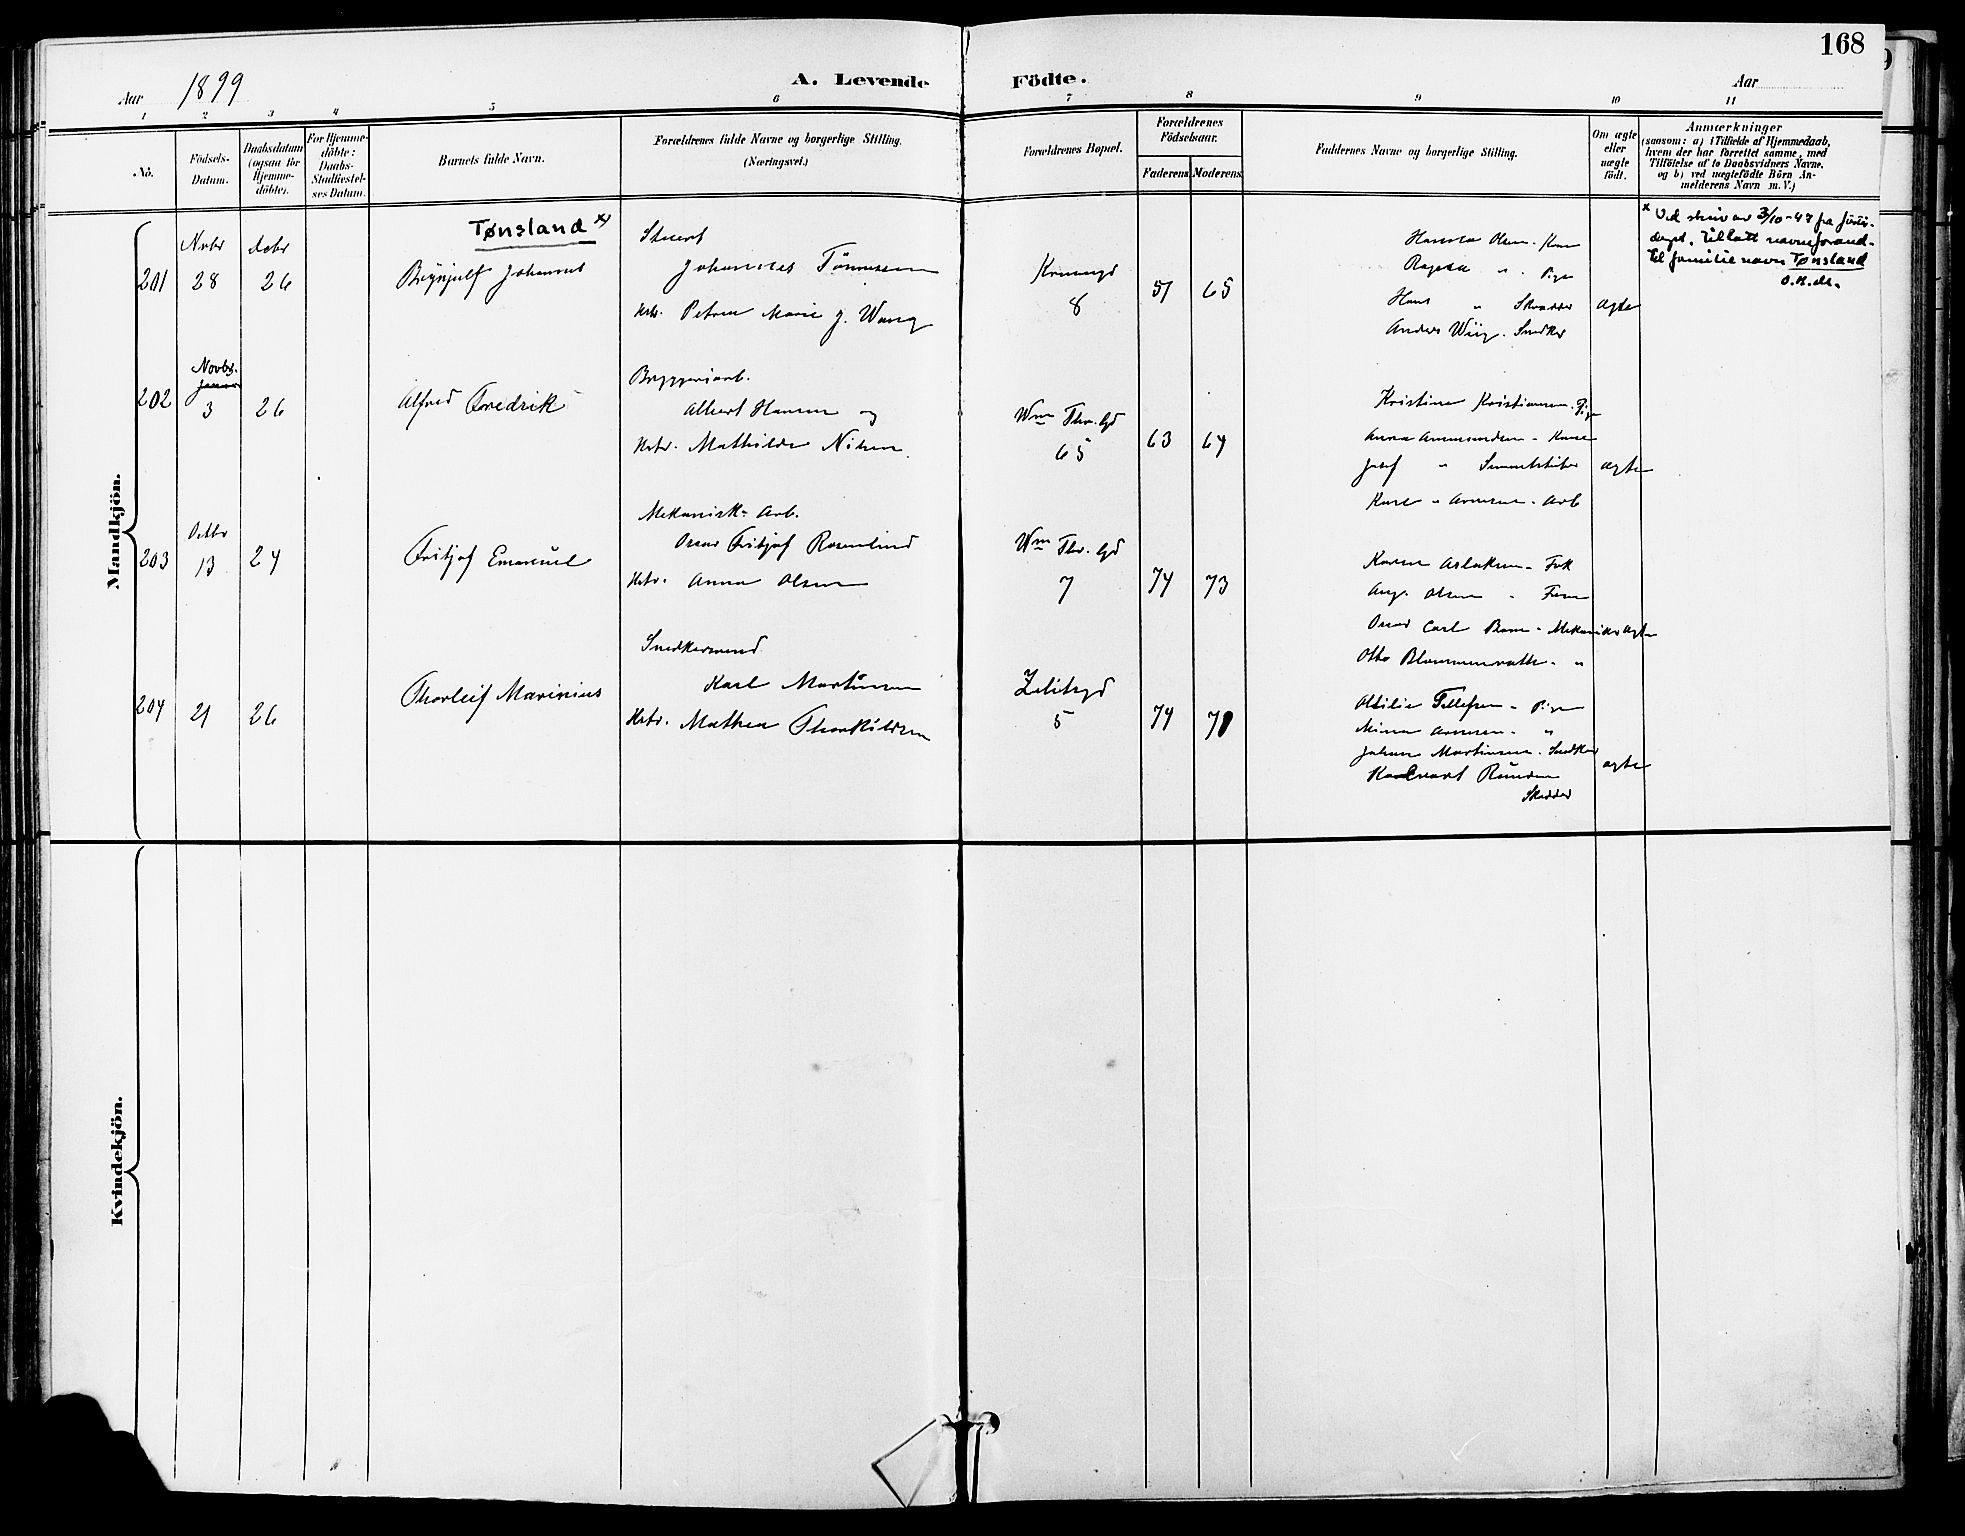 168
Aar 1899
A. Levende Födte.
Aar
1 2 3 4 5 6 7 8 9 10 11
No.
Födsels-Datum.
Daabsdatum (ogsaa för Hjemme-döbte).
For Hjemme-döbte: Daabs-Stadfæstel-ses Datum.
Barnets fulde Navn.
Forældrenes fulde Navne og borgerlige Stilling. (Næringsvei.)
Forældrenes Bopæl.
Forældrenes Födselsaar.
Faderens
Moderens
Faddernes Navne og borgerlige Stilling.
Om ægte eller uægte födt.
Anmærkninger
(saasom: a) i Tilfælde af Hjemmedaab,
hvem der har forrettet samme, med
Tilföielse af to Daabsvidners Navne,
og b) ved uægtefödte Börn An-
melderens Navn m. V.)
Mandkjön.
Tønsland x)
Novbr
28
Debr
26
201
Brynjulf Johannes
Stuert
Johannes Tönnessen
Hstr. Petrea Marie f. Wang
8
51 65
Olsen - Kone
" - Pige
Hans " Skrædder
Anders Wiig. Snedker
ægte
x Ved skriv av 3/10-47 fra
tillatt navneforand.
til familienavn Tønsland
202
Novbr.
3
26
Alfred Fredrik
Bryggeriarb.
Albert Hansen og
Hstr. Mathilde Nilsen
Wm Thr. gd
65
63 67
Kristine Kristiansen. Pige
Anna Ammundsen - Kone
Josef "
ægte
Karl - Arnesen - Arb
203
Octbr
13
24
Fritjof Emanuel
Mekanisk- Arb.
Oscar Fritjof Rosenlund
Hstr. Anna Olsen
Wm Thr. gd
7
74 73
Karen Aslaksen - Frk
Aug. Olsen - Frue
Oscar Carl - Mekaniker
ægte
Otto Blommenrath - "
204
21
26
Thorleif Marinius
Snedkersvend
Karl Martinsen
Hstr. Mathea Thorkildsen
5
74 71
Ottilie Tellefsen - Pige
Mina Arnesen - "
Johan Martinsen - Snedker
Skrædder
ægte
Kvindekjön.